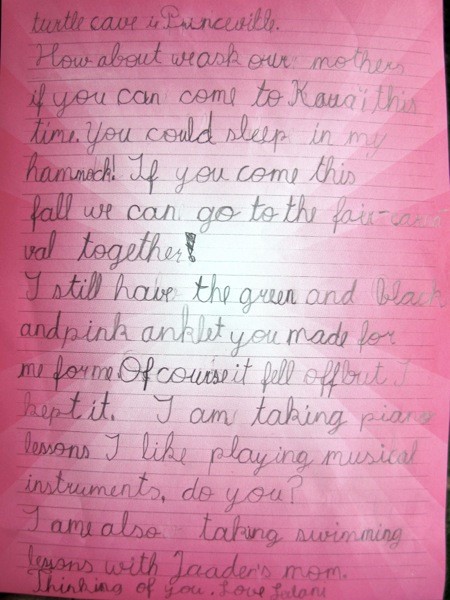 turtle cave in Princeville.
How about we ask our mothers
if you can come to Kauaïi this
time. You could sleep in my
hammock! If you come this
fall we can go to the fair-carni
val together!
I still have the green and black
and pink anklet you made for
me for me. Of course it fell off but I
kept it. I am taking piano
lessons I like playing musical
instruments, do you?
I am also taking swimming
lessons with Jaaden's mom.
Thinking of you, Love